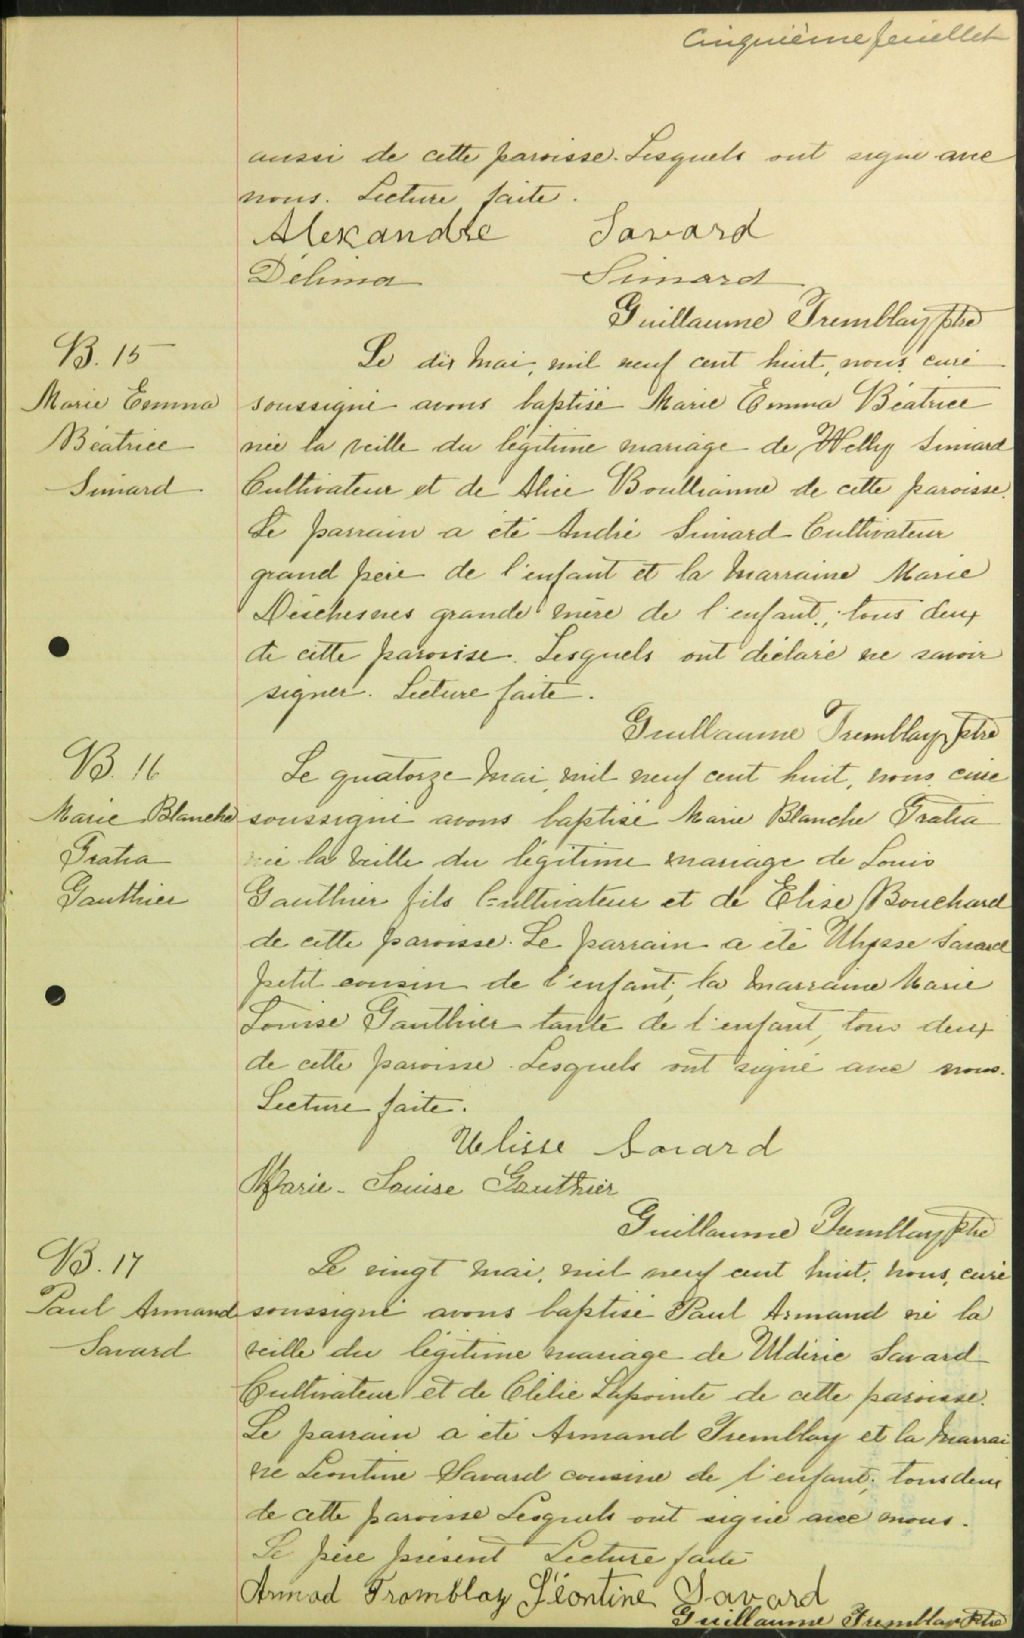 Cinquième feuillet
aussi de cette paroisse. Lesquels ont signé avec
nous. Lecture faite.
Alexandre Savard
Délima Simard
Guillaume Tremblay ptre
B. 15
Marie Emma
Béatrice
Simard
Le dix Mai, mil neuf cent huit, nous, curé
soussigné avons baptisé Marie Emma Béatrice
née la veille du légitime mariage de Welly Simard
Cultivateur et de Alice Boullianne de cette paroisse.
Le parrain a été André Simard Cultivateur
grand père de l'enfant et la Marraine Marie
Deschesnes grande mère de l'enfant; tous deux
de cette paroisse. Lesquels ont déclaré ne savoir
signer. Lecture faite.
Guillaume Tremblay, ptre
B. 16
Marie Blanche
Gratia
Gauthier
Le quatorze Mai, mil neuf cent huit, nous, curé
soussigné avons baptisé Marie Blanche Gratia
née la veille du légitime mariage de Louis
Gauthier fils Cultivateur et de Elise Bouchard
de cette paroisse. Le parrain a été Ulysse Savard
petit cousin de l'enfant; la Marraine Marie
Louise Gauthier tante de l'enfant, tous deux
de cette paroisse. Lesquels ont signé avec nous.
Lecture faite.
Ulisse Savard
Marie-Louise Gauthier
Guillaume Tremblay ptre
B. 17
Paul Armand
Savard
Le vingt Mai, mil neuf cent huit, nous, curé
soussigné avons baptisé Paul Armand né la
veille du légitime mariage de Uldéric Savard
Cultivateur et de Clélie Lapointe de cette paroisse.
Le parrain a été Armand Tremblay et la Marrai
ne Léontine Savard cousine de l'enfant; tous deux
de cette paroisse Lesquels ont signé avec nous.
Le père présent Lecture faite
Armod Tromblay Léontine Savard
Guillaume Tremblay Ptre